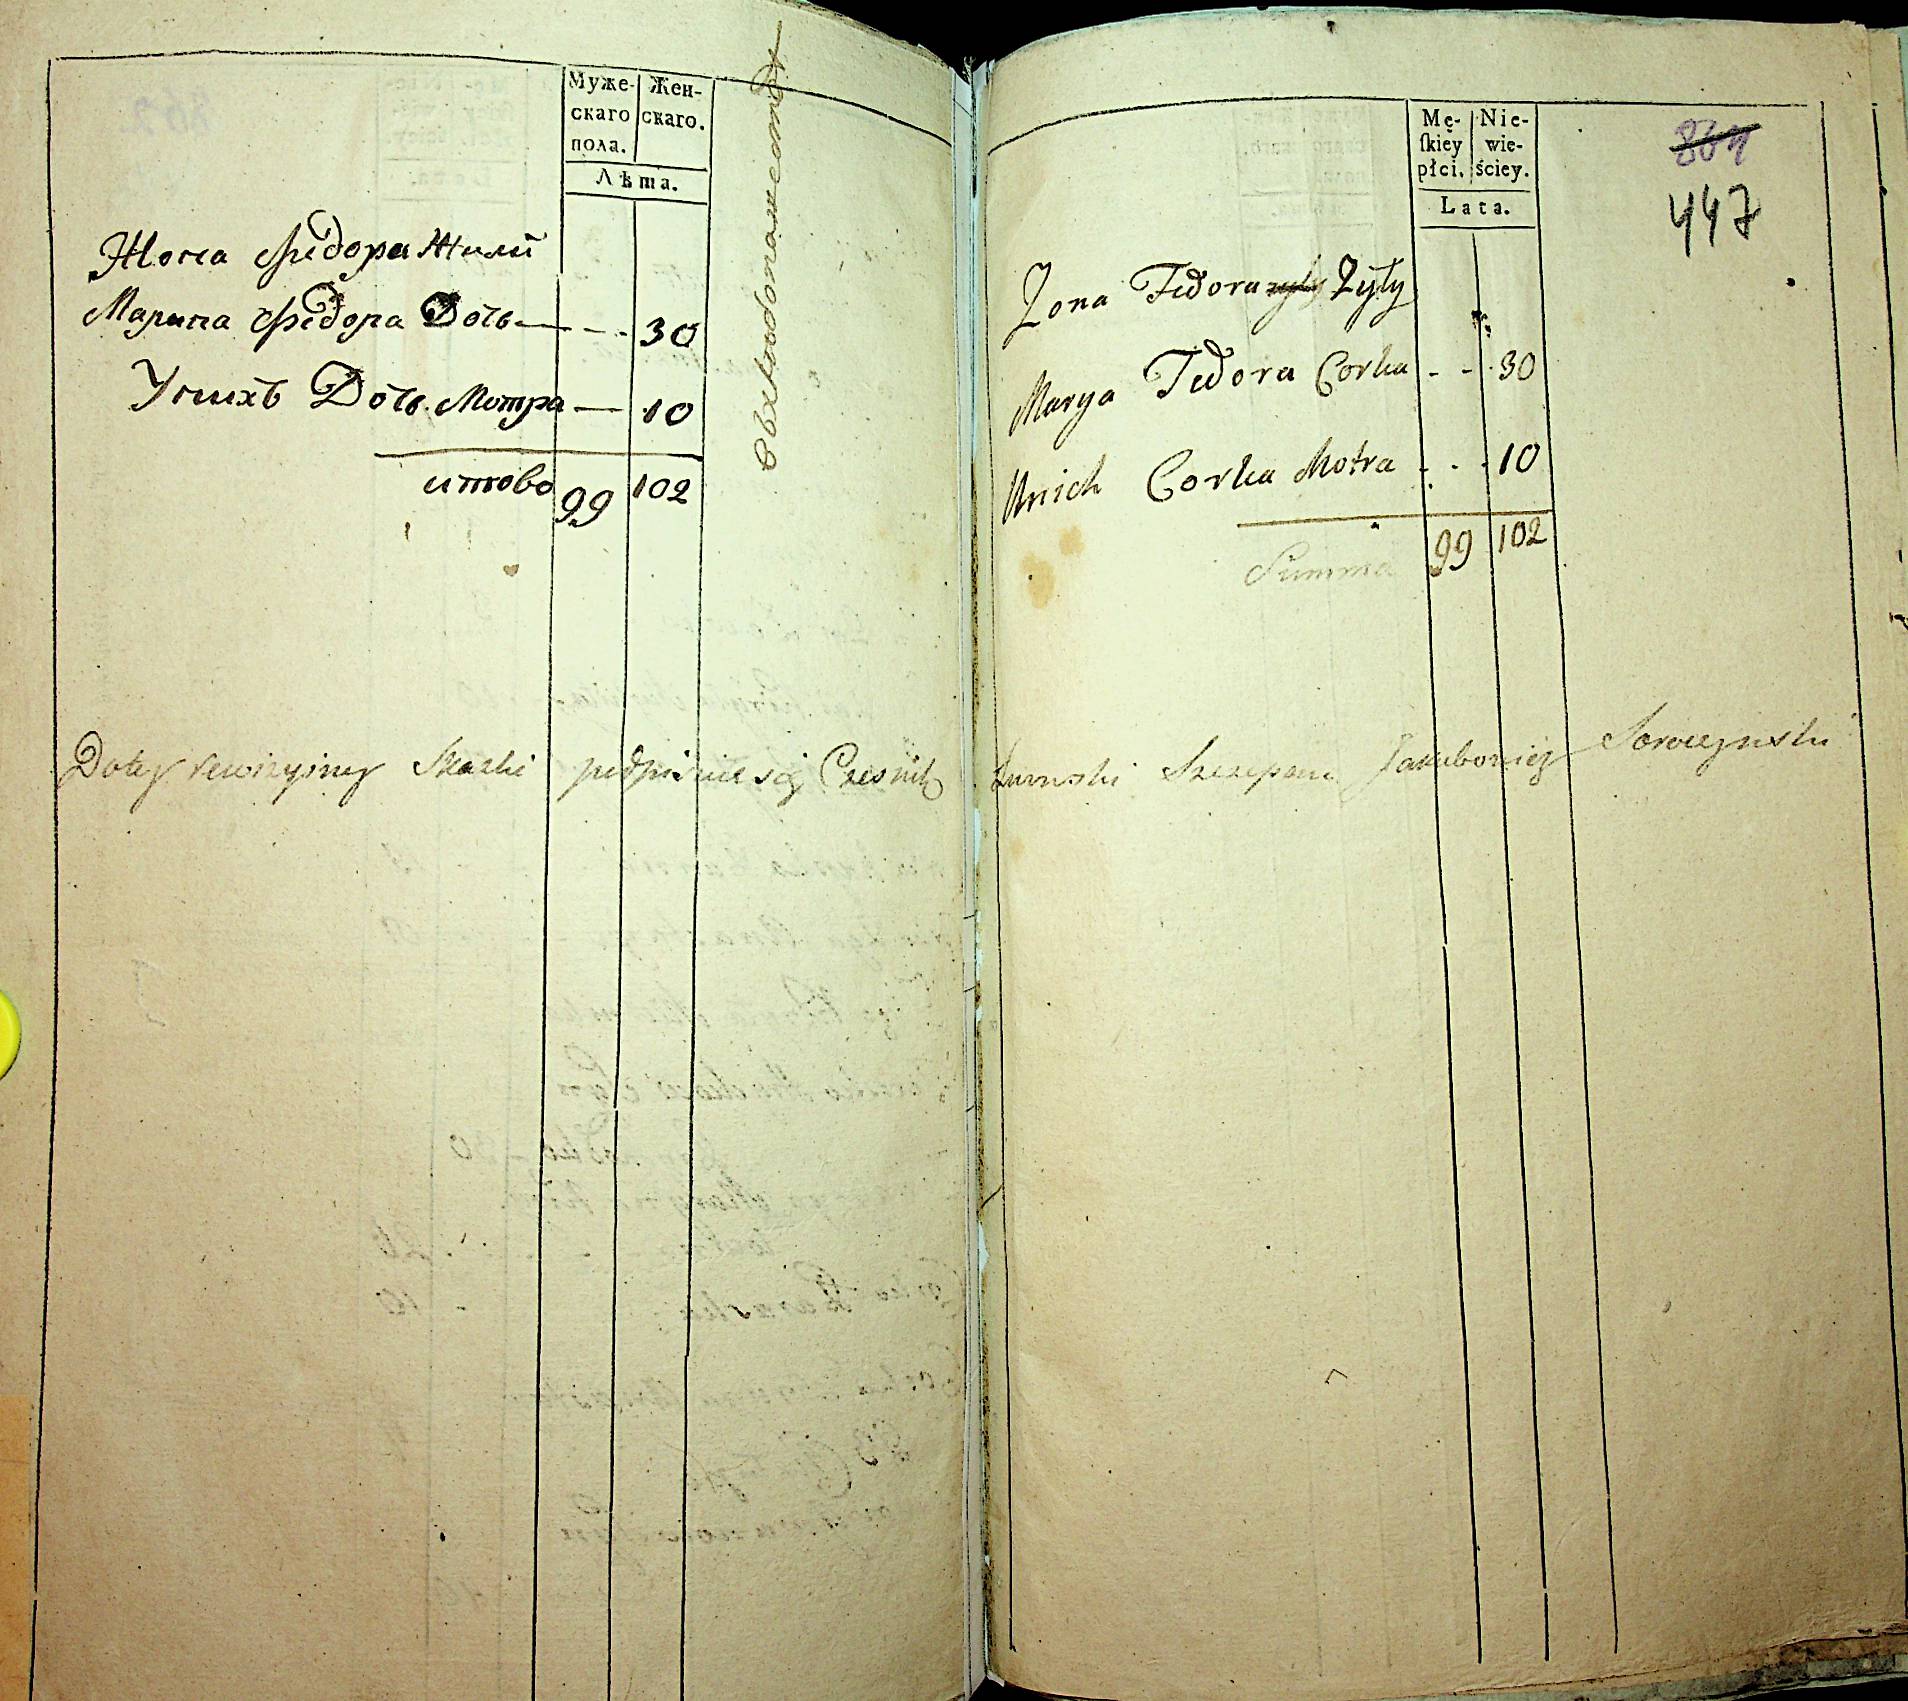 Муже-
скаго
пола.
Жен-
скаго.
Лѣта.
Жона Федора Жили
Марина Федора Дочь — - - 30
У нихъ Дочь Мотра — 10
итого 99 102
Mę-
ſkiey
płci.
Nie-
wie-
ściey.
Lata.
861
447
Zona Fedora Zyły
Marya Fedora Corka - - 30
U nich Corka Motra - - 10
Summa 99 102
Do tey rewizyiney Skazki podpisuie się Czesnik
Szczepan Jakubowicz